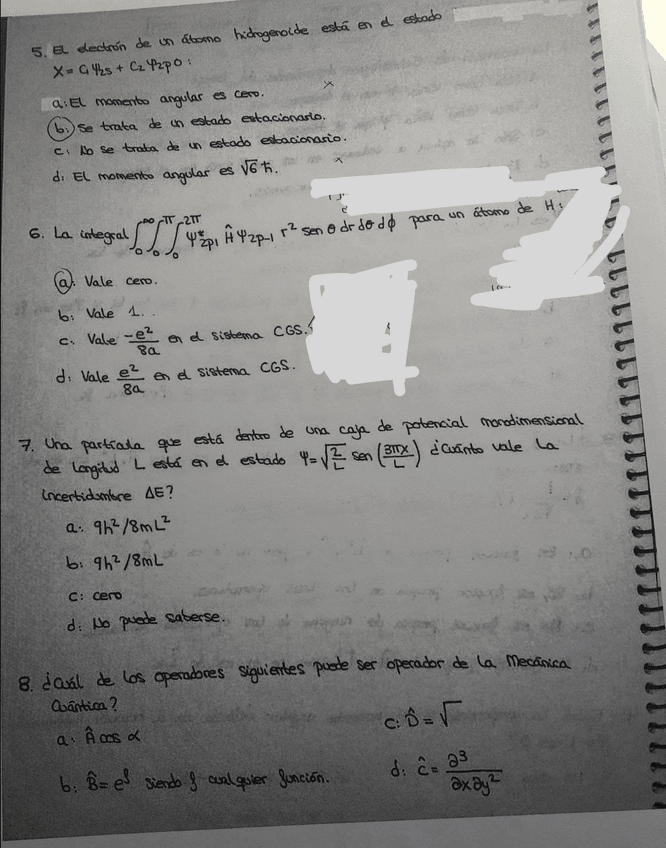 5. El electrón de un átomo hidrogenoide está en el estado
X = C₁Ψ₂s + C₂Ψ₂p0:
a: El momento angular es cero.
b: Se trata de un estado estacionario.
c: No se trata de un estado estacionario.
d: El momento angular es √6 ħ.
6. La integral ∫₀^∞ ∫₀^π ∫₀^2π Ψ*2p1 Ĥ Ψ2p-1 r² sen θ dr dθ dϕ para un átomo de H:
a. Vale cero.
b: Vale 1.
c. Vale -e²/8a en el sistema CGS.
d: Vale e²/8a en el sistema CGS.
7. Una partícula que está dentro de una caja de potencial monodimensional
de longitud L está en el estado Ψ=√(2/L) sen(3πx/L) ¿Cuánto vale la
incertidumbre ΔE?
a: 9h²/8mL²
b: 9h²/8mL
c: cero
d: No puede saberse.
8. ¿Cuál de los operadores siguientes puede ser operador de la Mecánica
Cuántica?
a: Â cos α
b: B̂ = e^f siendo f cualquier función.
c: D̂ = √
d: ĉ = ∂³/∂x∂y²